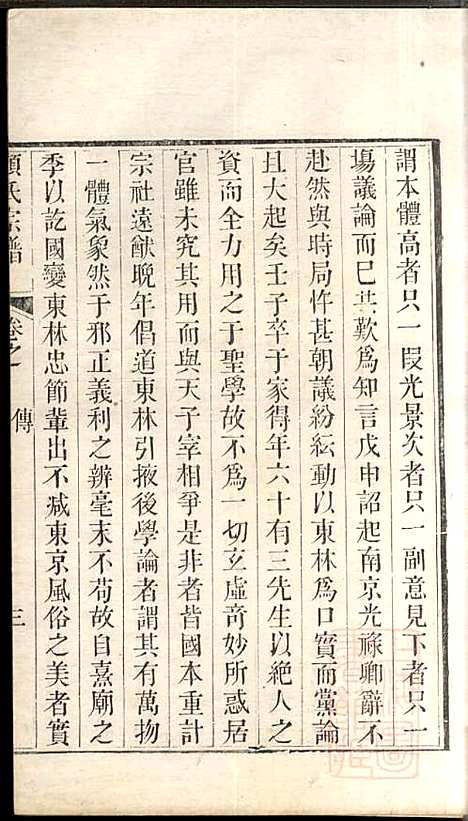 謂本體高者只一段光景次者只一副意見下者只一
場議論而已共歎爲知言戊申詔起南京光祿卿辭不
赴然與時局忤甚朝議紛紜動以東林爲口實而黨論
且大起矣壬子卒于家得年六十有三先生以絶人之
資而全力用之于聖學故不爲一切玄虛奇妙所惑居
官雖未究其用而與天子宰相爭是非者皆國本重計
宗社遠猷晚年倡道東林引掖後學論者謂其有萬物
一體氣象然于邪正義利之辨毫末不苟故自熹廟之
季以訖國變東林忠節輩出不减東京風俗之美者實
顧氏宗譜
卷之一
傳
三